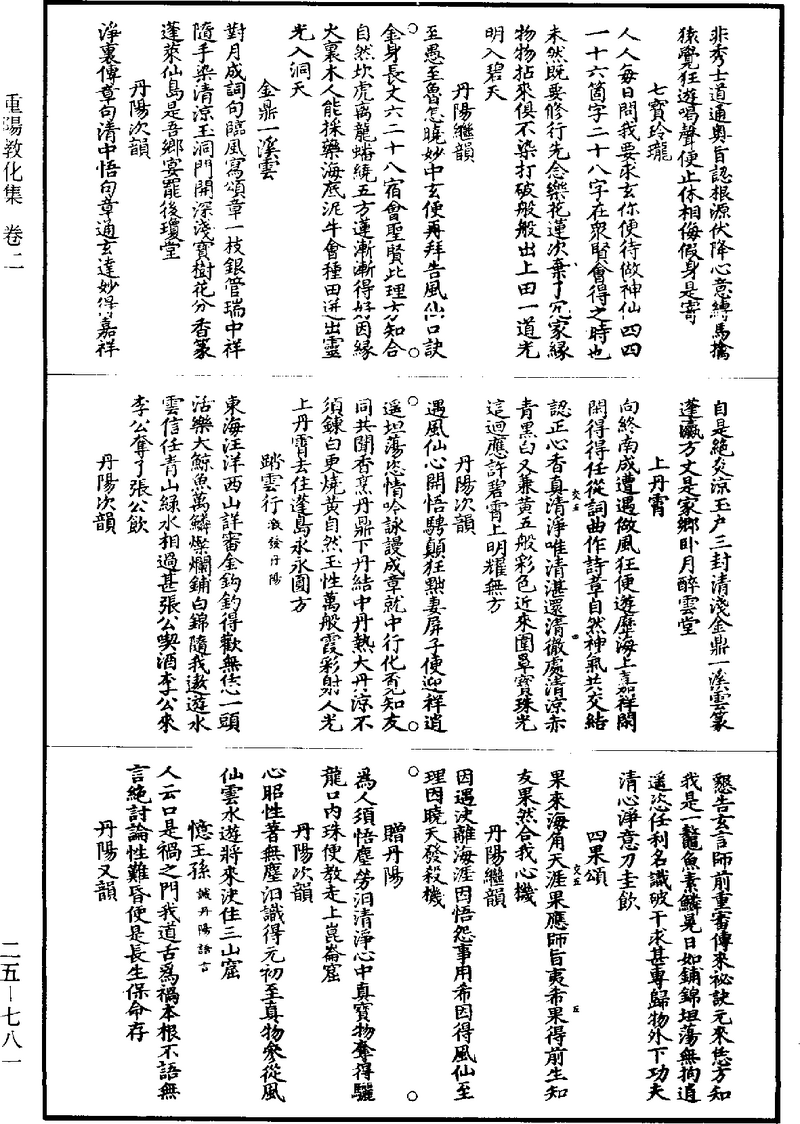 非秀士道通奧旨認根源伏降心意縛馬擒
猿覺狂遊唱聲便止休相侮假身是寄
七寶玲瓏
人人每日問我要求玄你便待做神仙四四
一十六箇字二十八字在眾賢會得之時也
未然既要修行先念樂花蓮次棄了冗家緣
物物拈來俱不染打破般般出上田一道光
明入碧天
丹陽繼韻
至愚至魯怎曉妙中玄便再拜告風仙口訣
金身長丈六二十八宿會聖賢此理方知合
自然坎虎离龍蟠繞五方蓮漸漸得好因緣
火裏木人能採藥海底泥牛會種田迸出靈
光入洞天
金鼎一溪雲
對月成詞句臨風寫頌章一枝銀管瑞中祥
隨手染清涼玉洞門開深淺寶樹花分香篆
蓬萊仙島是吾鄉宴罷後瓊堂
丹陽次韻
淨裏傳章句清中悟句章通玄達妙得嘉祥
自是絕炎涼玉戶三封清淺金鼎一溪雲篆
蓬瀛方丈是家鄉卧月醉雲堂
上丹霄
向終南成遭遇做風狂便遊歷海上嘉祥閑
閑得得任從詞曲作詩章自然神氣共交結
認正心香真清淨唯清湛還清徹處清涼赤
青黑白又兼黃五般彩色近來圍罩寶珠光
這迴應許碧霄上明耀無方
丹陽次韻
遇風仙心開悟騁顛狂㸃妻屏子便迎祥逍
遥坦蕩恣情吟詠謾成章就中行化覔知友
同共聞香烹丹鼎下丹結中丹熱大丹涼不
須鍊白更燒黃自然玉性萬般霞彩射人光
上丹霄去住蓬島永永圓方
踏雲行 教繼丹陽
東海汪洋西山詳審金鈎釣得歡無恁一頭
活樂大鯨魚萬鱗燦爛鋪白錦隨我遨遊水
雲信任青山綠水相過甚張公喫酒李公來
李公奪了張公飲
丹陽次韻
懇告玄言師前重審傳來祕訣元來恁方知
我是一鼇魚素鱗晃日如鋪錦坦蕩無拘逍
遥恣任利名識破干求甚專歸物外下功夫
清心淨意刀圭飲
四果頌
果來海角天涯果應師旨夷希果得前生知
友果然合我心機
丹陽繼韻
因遇決離海涯因悟怨事用希因得風仙至
理因曉天發殺機
贈丹陽
爲人須悟塵勞汩清淨心中真寶物奪得驪
龍口内珠便教走上崑崙窟
丹陽次韻
心昭性著無塵汩識得元初至真物叅從風
仙雲水遊將來決住三山窟
憶王孫 誡丹陽語言
人云口是禍之門我道古爲禍本根不語無
言絶討論性難昏便是長生保命存
丹陽又韻
重陽教化集 卷二
二五—七八一